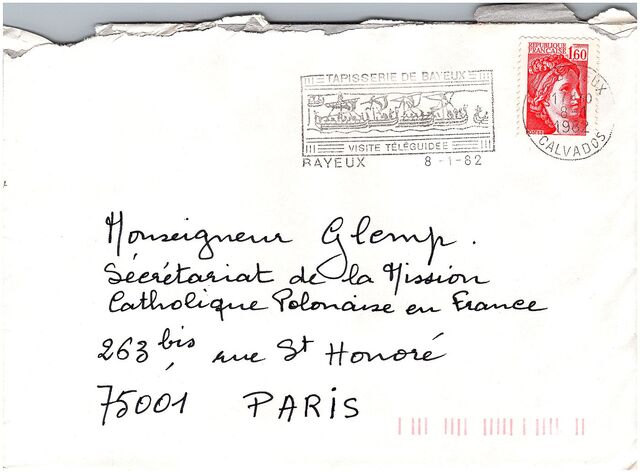 TAPISSERIE DE BAYEUX
VISITE TÉLÉGUIDÉE
BAYEUX 8-1-82
RÉPUBLIQUE
FRANÇAISE 1,60
1982
CALVADOS
Monseigneur Glemp.
Sécrétariat de la Mission
Catholique Polonaise en France
263 bis, rue St Honoré
75001 PARIS